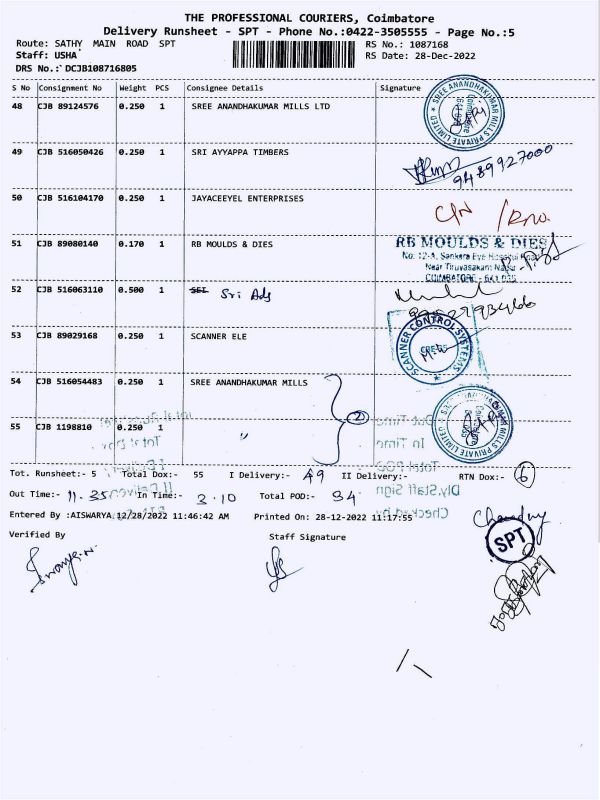 THE PROFESSIONAL COURIERS, Coimbatore
Delivery Runsheet - SPT - Phone No.:0422-3505555 - Page No.:5
Route: SATHY MAIN ROAD SPT RS No.: 1087168
Staff: USHA RS Date: 28-Dec-2022
DRS No.: DCJB108716805
S No Consignment No Weight PCS Consignee Details Signature
48 CJB 89124576 0.250 1 SREE ANANDHAKUMAR MILLS LTD
SREE ANANDHAKUMAR MILLS PRIVATE LIMITED
49 CJB 516050426 0.250 1 SRI AYYAPPA TIMBERS
9489927000
50 CJB 516104170 0.250 1 JAYACEEYEL ENTERPRISES
51 CJB 89080140 0.170 1 RB MOULDS & DIES RB MOULDS & DIES
Near Tiruvasakam
COIMBATORE
52 CJB 516063110 0.500 1 SEI Sri Ads
53 CJB 89029168 0.250 1 SCANNER ELE
SCANNER CONTROL SYSTEMS
54 CJB 516054483 0.250 1 SREE ANANDHAKUMAR MILLS
2
55 CJB 1198810 0.250 1 "
Tot. Runsheet:- 5 Total Dox:- 55 I Delivery:- 49 II Delivery:- RTN Dox:- 6
Out Time:- 11.35 In Time:- 3.10 Total POD:- 34
Entered By :AISWARYA 12/28/2022 11:46:42 AM Printed On: 28-12-2022 11:17:55
Verified By Staff Signature
SPT